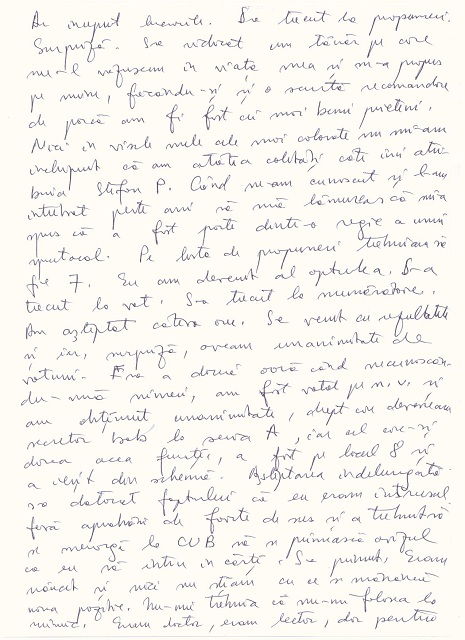 Au început lucrurile. S-a trecut la propuneri.
Surpriză. S-a ridicat un tânăr pe care
nu-l văzusem în viața mea și m-a propus
pe mine, făcându-și și o scurtă recomandare
de parcă am fi fost cei mai buni prieteni.
Nici în visele mele cele mai colorate nu mi-am
închipuit că am atâtea calități câte îmi atri-
buia Ștefan P. Când ne-am cunoscut și l-am
întrebat peste ani să mă lămurească mi-a
spus că a fost parte dintr-o regie a unui
spectacol. Pe lista de propuneri trebuiau să
fie 7. Eu am devenit al optulea. S-a
trecut la vot. S-a trecut la numărătoare.
Am așteptat câteva ore. S-a venit cu rezultatele
și iar, surpriză, aveam unanimitate de
voturi. Era a doua oară când necunoscân-
du-mă nimeni, am fost votat pe n. v. și
am obținut unanimitate, drept care deveneam
secretar la secția A, iar cel care-și
dorea acea funcție, a fost pe locul 8 și
a ieșit din schemă. Așteptarea îndelungată
s-a datorat faptului că eu eram intrusul
fără aprobări de foarte de sus și a trebuit să
se meargă la CUB să se primească avizul
ca eu să intru în cărți. S-a primit. Eram
năucit și nici nu știam cu ce se mănâncă
noua poziție. Nu-mi trebuia că nu-mi folosea la
nimic. Eram doctor, eram lector, dar pentru